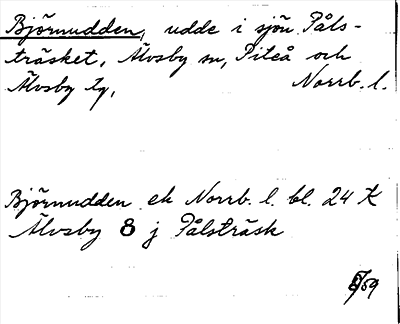 Björnudden, udde i sjön Påls-
träsket, Älvsby sn, Piteå och
Älvsby tg, Norrb. l.
Björnudden ek Norrb. l. bl. 24 K
Älvsby 8 j Pålsträsk